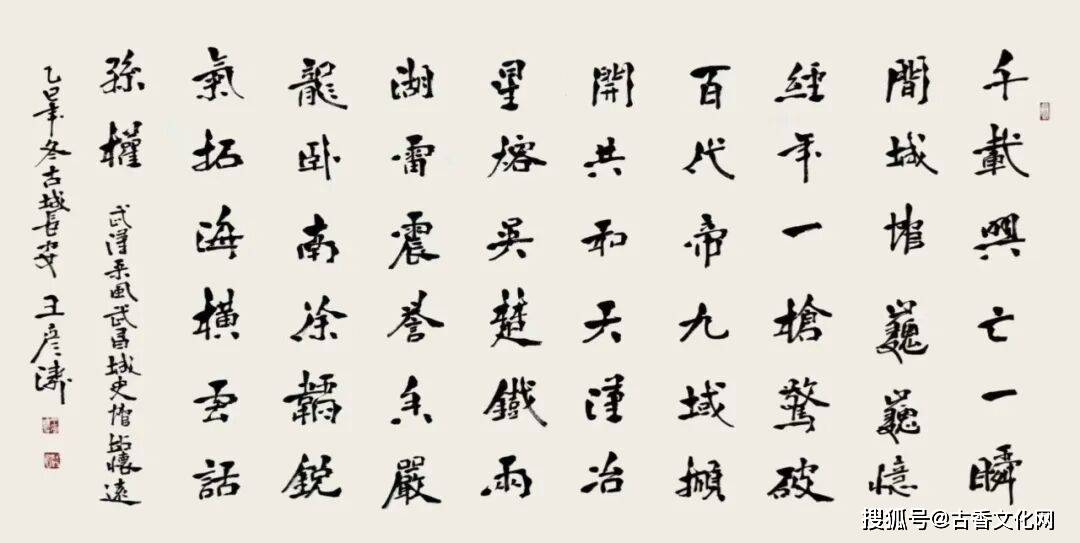 千載興亡一瞬
間城館巍巍憶
經年一槍驚破
百代帝九域
開共和天漢冶
星熔吳楚鐵雨
湖雷震譽嚴
龍卧南徐韜銳
氣拓海橫雲話
孫權
武漢采風武昌城史館懷遠
乙巳年冬古城長安 王彥濤
搜狐号@古香文化网